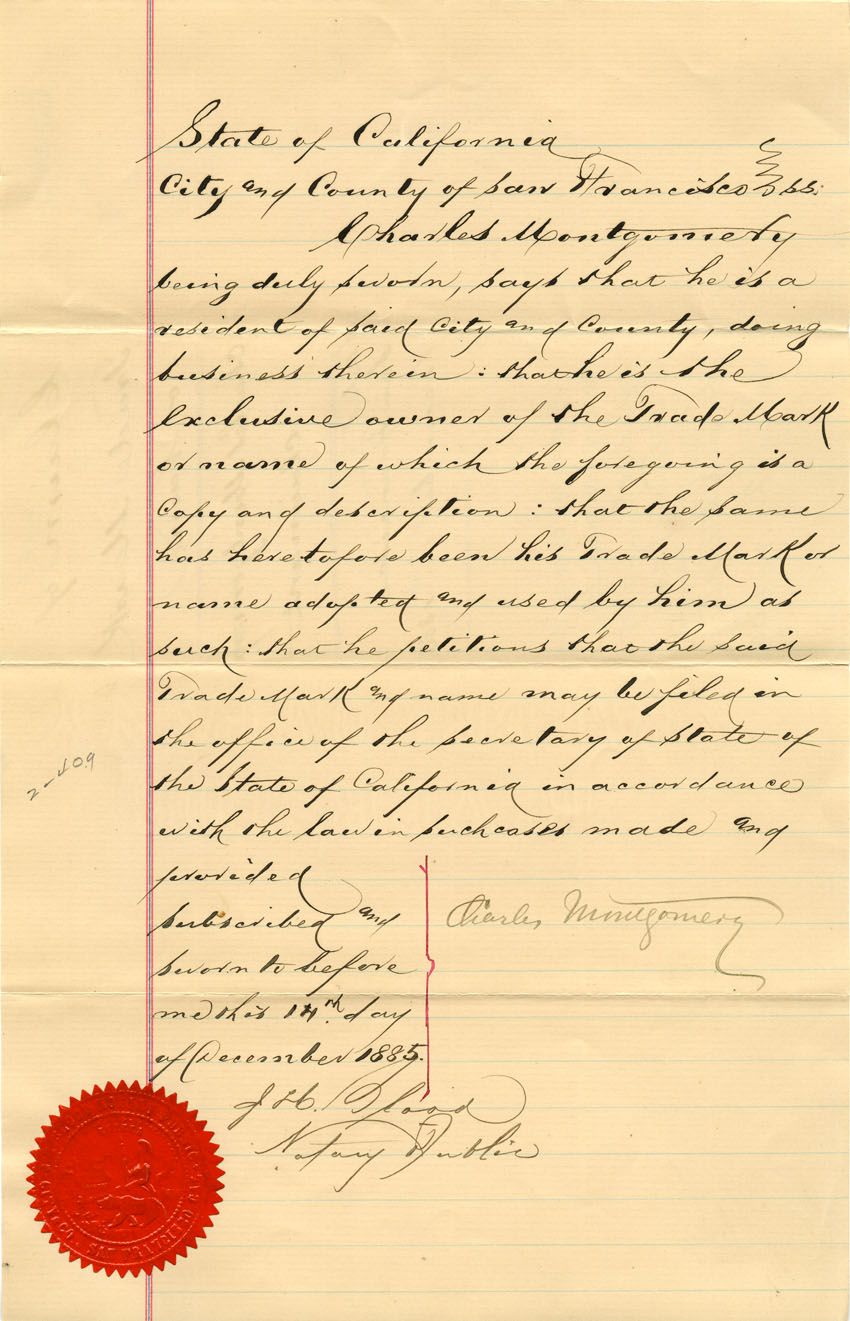 State of California
City and County of San Francisco } ss.
Charles Montgomery
being duly sworn, says that he is a
resident of said City and County, doing
business therein : that he is the
exclusive owner of the Trade Mark
or name of which the foregoing is a
Copy and description : that the same
has heretofore been his Trade Mark or
name adopted and used by him as
such : that he petitions that the said
Trade Mark and name may be filed in
the office of the secretary of state of
the State of California in accordance
with the law in such cases made and
provided
subscribed and
sworn to before
me this 14th day
of December 1885.
Charles Montgomery
J. H.
Notary Public
2-409